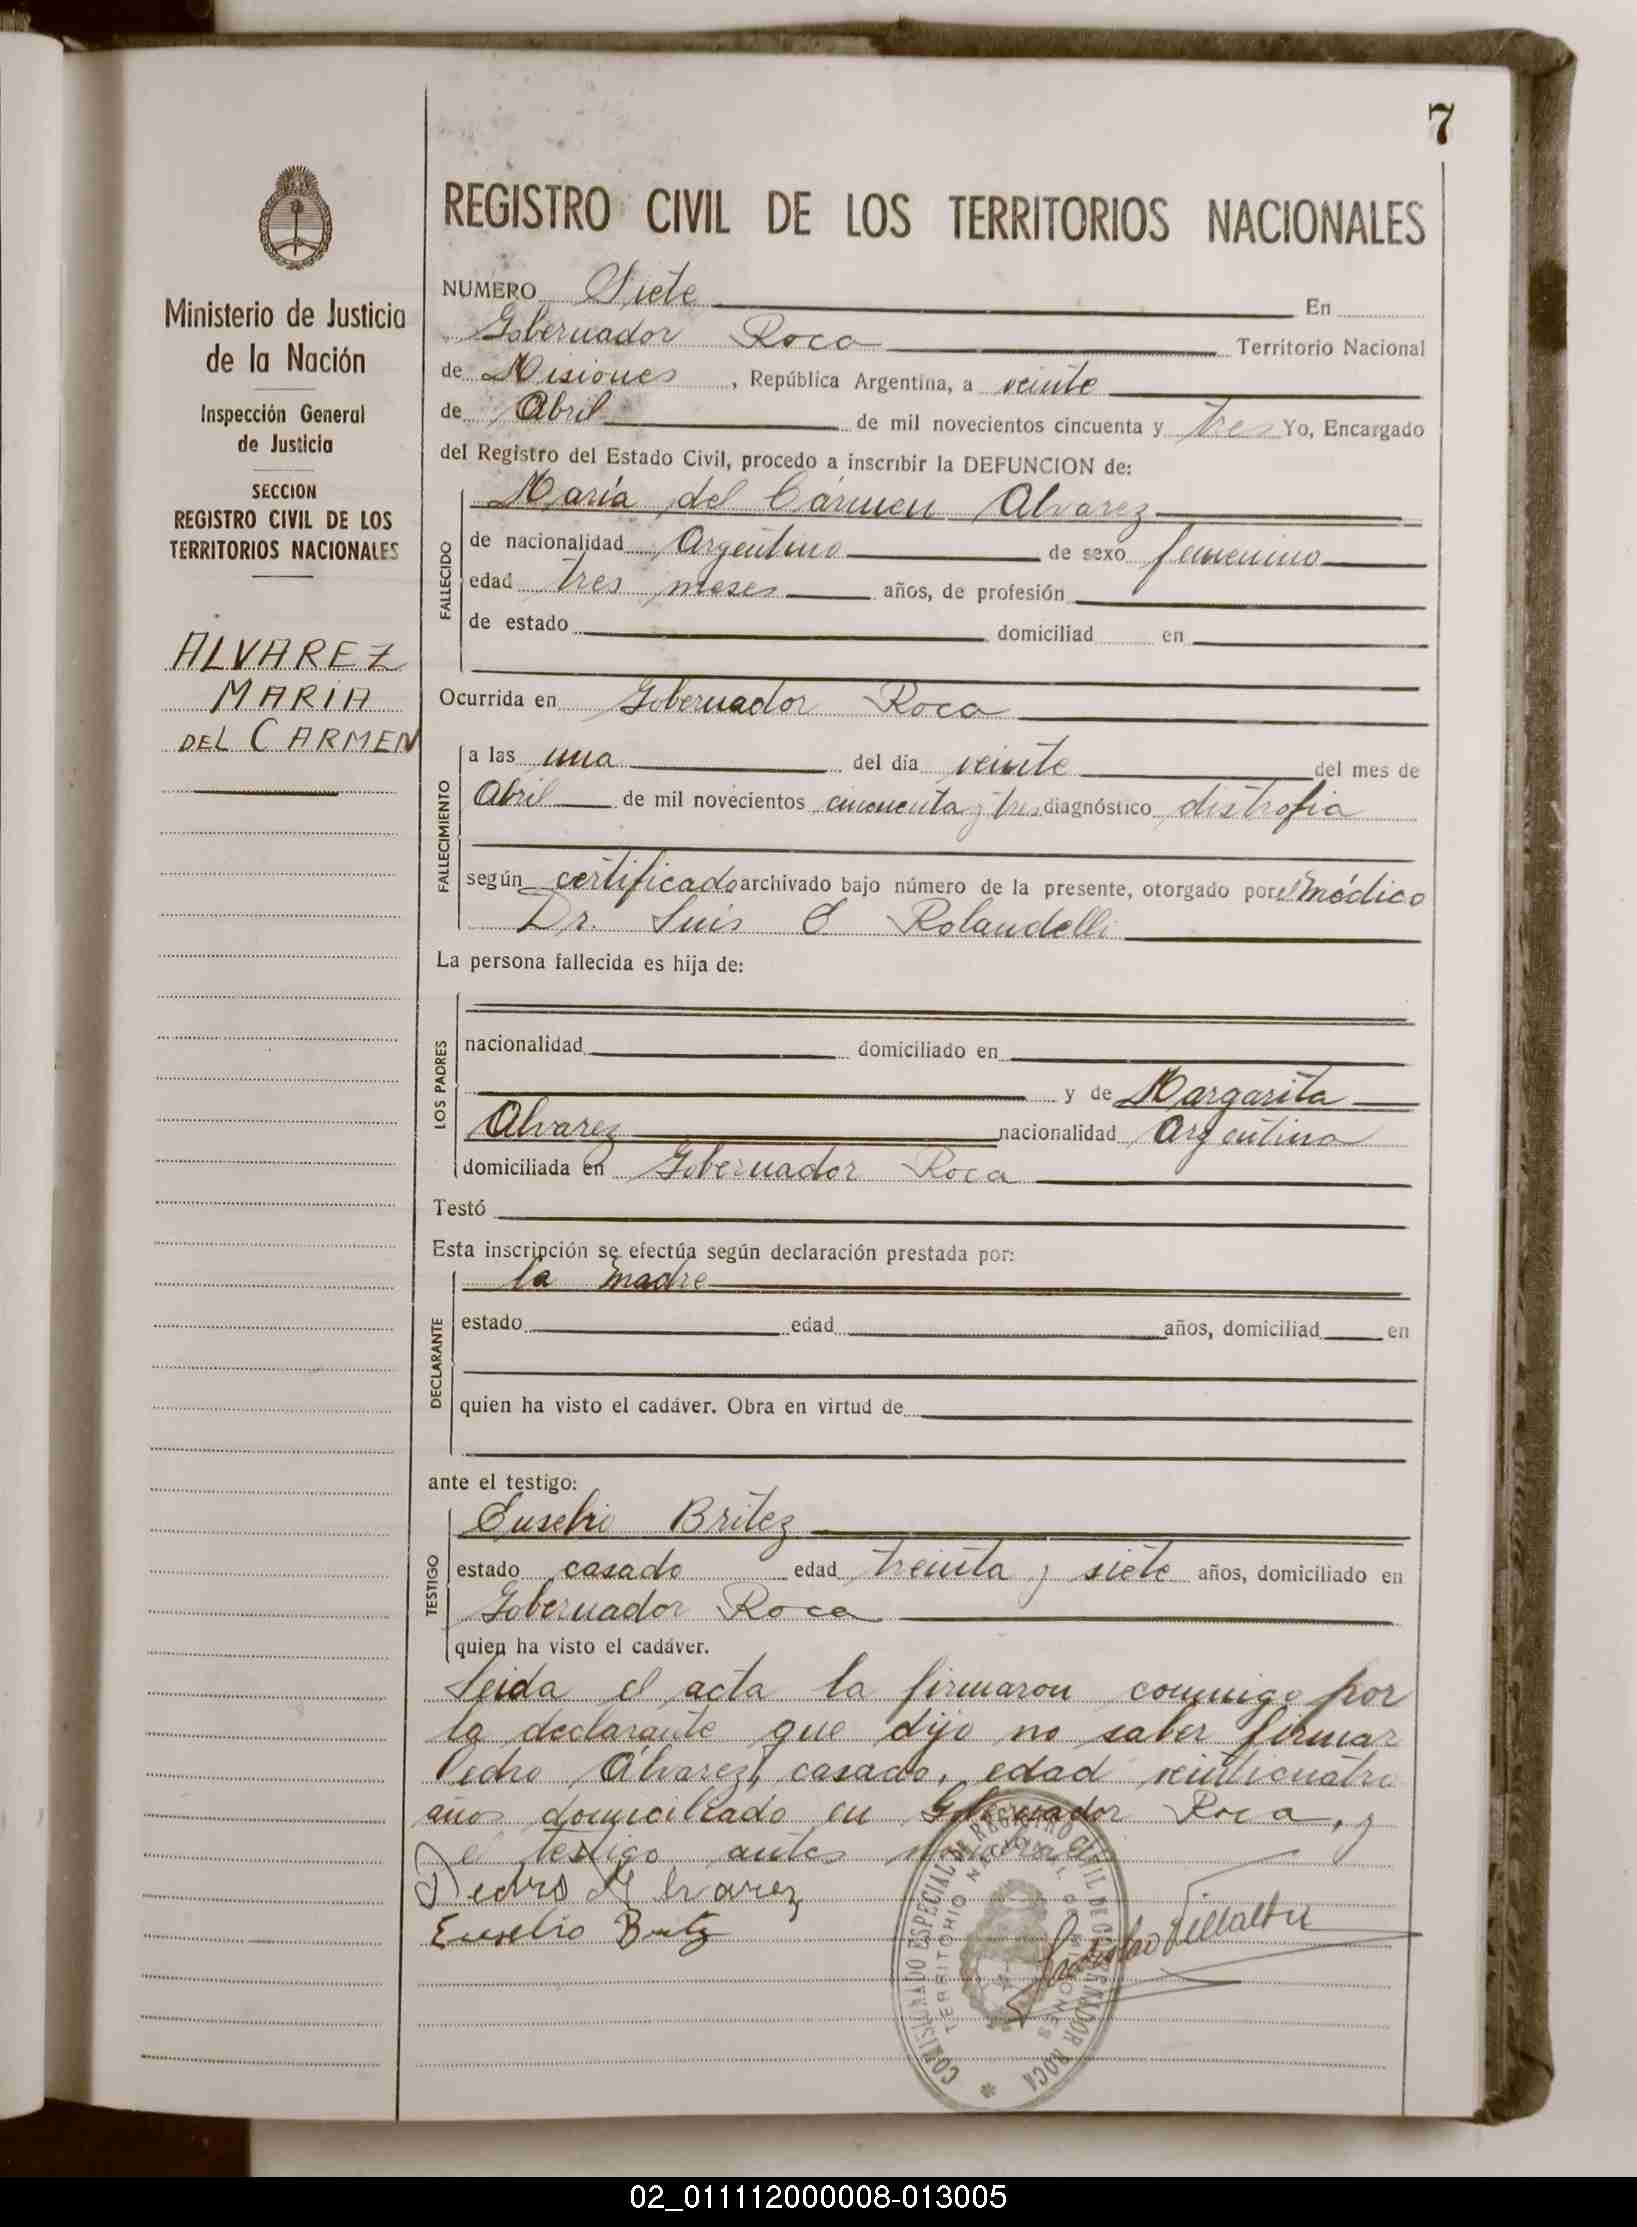 7
REGISTRO CIVIL DE LOS TERRITORIOS NACIONALES
Ministerio de Justicia
de la Nación
Inspección General
de Justicia
SECCION
REGISTRO CIVIL DE LOS
TERRITORIOS NACIONALES
ALVAREZ
MARIA
DEL CARMEN
NUMERO Siete En
Gobernador Roca Territorio Nacional
de Misiones, República Argentina, a veinte
de Abril de mil novecientos cincuenta y tres Yo, Encargado
del Registro del Estado Civil, procedo a inscribir la DEFUNCION de:
FALLECIDO
María del Cármen Alvarez
de nacionalidad Argentina de sexo femenino
edad tres meses años, de profesión
de estado domiciliad en
Ocurrida en Gobernador Roca
FALLECIMIENTO
a las una del día veinte del mes de
Abril de mil novecientos cincuenta y tres diagnóstico distrofia
según certificado archivado bajo número de la presente, otorgado por el médico
Dr. Luis E Rolandelli
La persona fallecida es hija de:
LOS PADRES
nacionalidad domiciliado en
y de Margarita
Alvarez nacionalidad Argentina
domiciliada en Gobernador Roca
Testó
Esta inscripción se efectúa según declaración prestada por:
DECLARANTE
la madre
estado edad años, domiciliad en
quien ha visto el cadáver. Obra en virtud de
ante el testigo:
TESTIGO
Eusebio Britez
estado casado edad treinta y siete años, domiciliado en
Gobernador Roca
quien ha visto el cadáver.
Leida el acta la firmaron conmigo por
la declarante que dijo no saber firmar
Pedro Álvarez, casado, edad veinticuatro
años domiciliado en Gobernador Roca, y
el testigo antes nombrado
Pedro Alvarez
Eusebio Britez
Villalba
COMISIONADO ESPECIAL DE REGISTRO CIVIL DE GOBERNADOR ROCA
TERRITORIO NACIONAL DE MISIONES
02_011112000008-013005